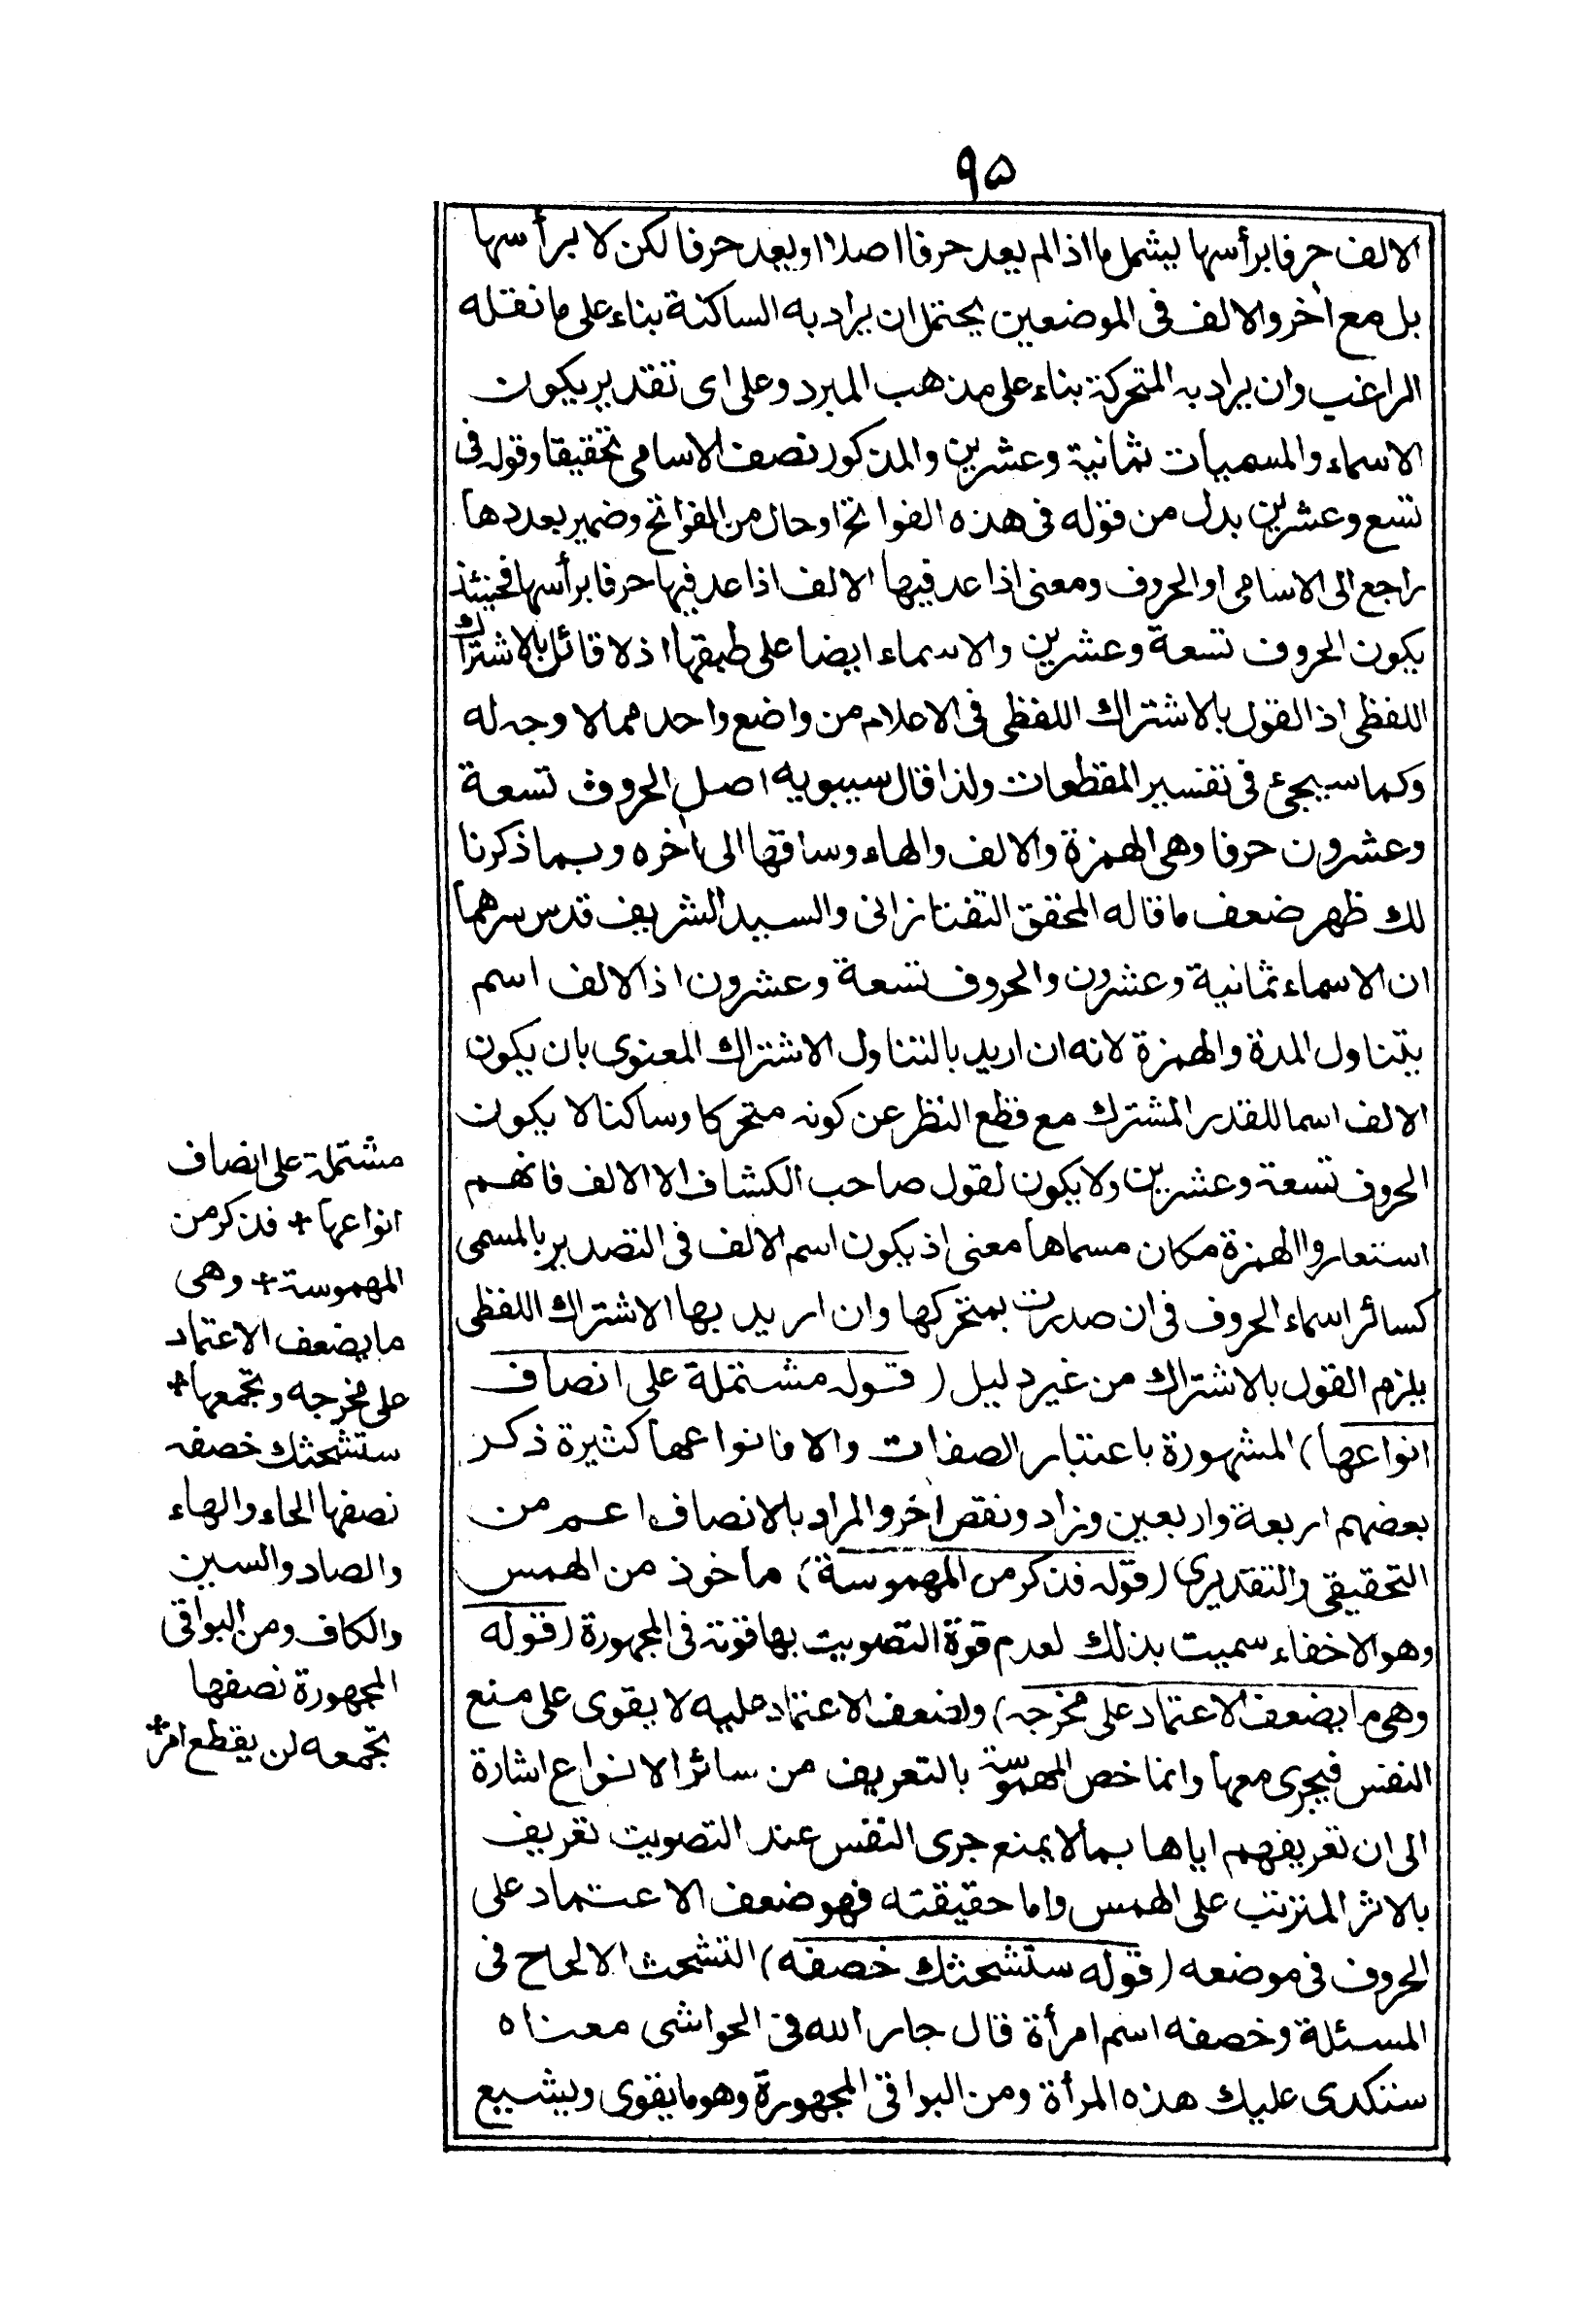 ٩٥
الالف حرفا برأسها يشمل ما اذا لم يعد حرفا اصلا او يعد حرفا لكن لا برأسها
بل مع اٰخر والالف فى الموضعين يحتمل ان يراد به الساكنة بناء على ما نقله
الراغب وان يراد به المتحركة بناء على مذهب المبرد وعلى اى تقدير يكون
الاسماء والمسميات ثمانية وعشرين والمذكور نصف الاسامى تحقيقا وقوله فى
تسع وعشرين بدل من قوله فى هذه الفواتح او حال من الفواتح وضمير بعددها
راجع الى الاسامى او الحروف ومعنى اذا عد فيها الالف اذا عد فيها حرفا برأسها فحينئذ
يكون الحروف تسعة وعشرين والاسماء ايضا على طبقها اذ لا قائل بالاشتراك
اللفظى اذ القول بالاشتراك اللفظى فى الاعلام من واضع واحد مما لا وجه له
وكما سيجئ فى تفسير المقطعات ولذا قال سيبويه اصل الحروف تسعة
وعشرون حرفا وهى الهمزة والالف والهاء وساقها الى اٰخره وبما ذكرنا
لك ظهر ضعف ما قاله المحقق التفتازانى والسيد الشريف قدس سرهما
ان الاسماء ثمانية وعشرون والحروف تسعة وعشرون اذ الالف اسم
يتناول المدة والهمزة لانه ان اريد بالتناول الاشتراك المعنوى بان يكون
الالف اسما للقدر المشترك مع قطع النظر عن كونه متحركا وساكنا لا يكون
الحروف تسعة وعشرين ولا يكون لقول صاحب الكشاف الا الالف فانهم
استعاروا الهمزة مكان مسماها معنى اذ يكون اسم الالف فى التصدير بالمسمى
كسائر اسماء الحروف فى ان صدرت بمتحركها وان اريد بها الاشتراك اللفظى
يلزم القول بالاشتراك من غير دليل (قوله مشتملة على انصاف
انواعها) المشهورة باعتبار الصفات والا فانواعها كثيرة ذكر
بعضهم اربعة واربعين وزاد ونقص اٰخر والمراد بالانصاف اعم من
التحقيقى والتقديرى (قوله فذكر من المهموسة) ماخوذ من الهمس
وهو الاخفاء سميت بذلك لعدم قوة التصويت بها قوته فى المجهورة (قوله
وهى ما يضعف الاعتماد على مخرجه) ولضعف الاعتماد عليه لا يقوى على منع
النفس فيجرى معها وانما خص المهموسة بالتعريف من سائر الانواع اشارة
الى ان تعريفهم اياها بما لا يمنع جرى النفس عند التصويت تعريف
بالاثر المترتب على الهمس واما حقيقته فهو ضعف الاعتماد على
الحروف فى موضعه (قوله ستشحثك خصفه) التشحث الالحاح فى
المسئلة وخصفه اسم امرأة قال جار الله فى الحواشى معناه
ستكدى عليك هذه المرأة ومن البواقى المجهورة وهو ما يقوى ويشبع
مشتملة على انصاف
انواعها + فذكر من
المهموسة + وهى
ما يضعف الاعتماد
على مخرجه وتجمعها +
ستشحثك خصفه
نصفها الحاء والهاء
والصاد والسين
والكاف ومن البواقى
المجهورة نصفها
تجمعه لن يقطع امر +